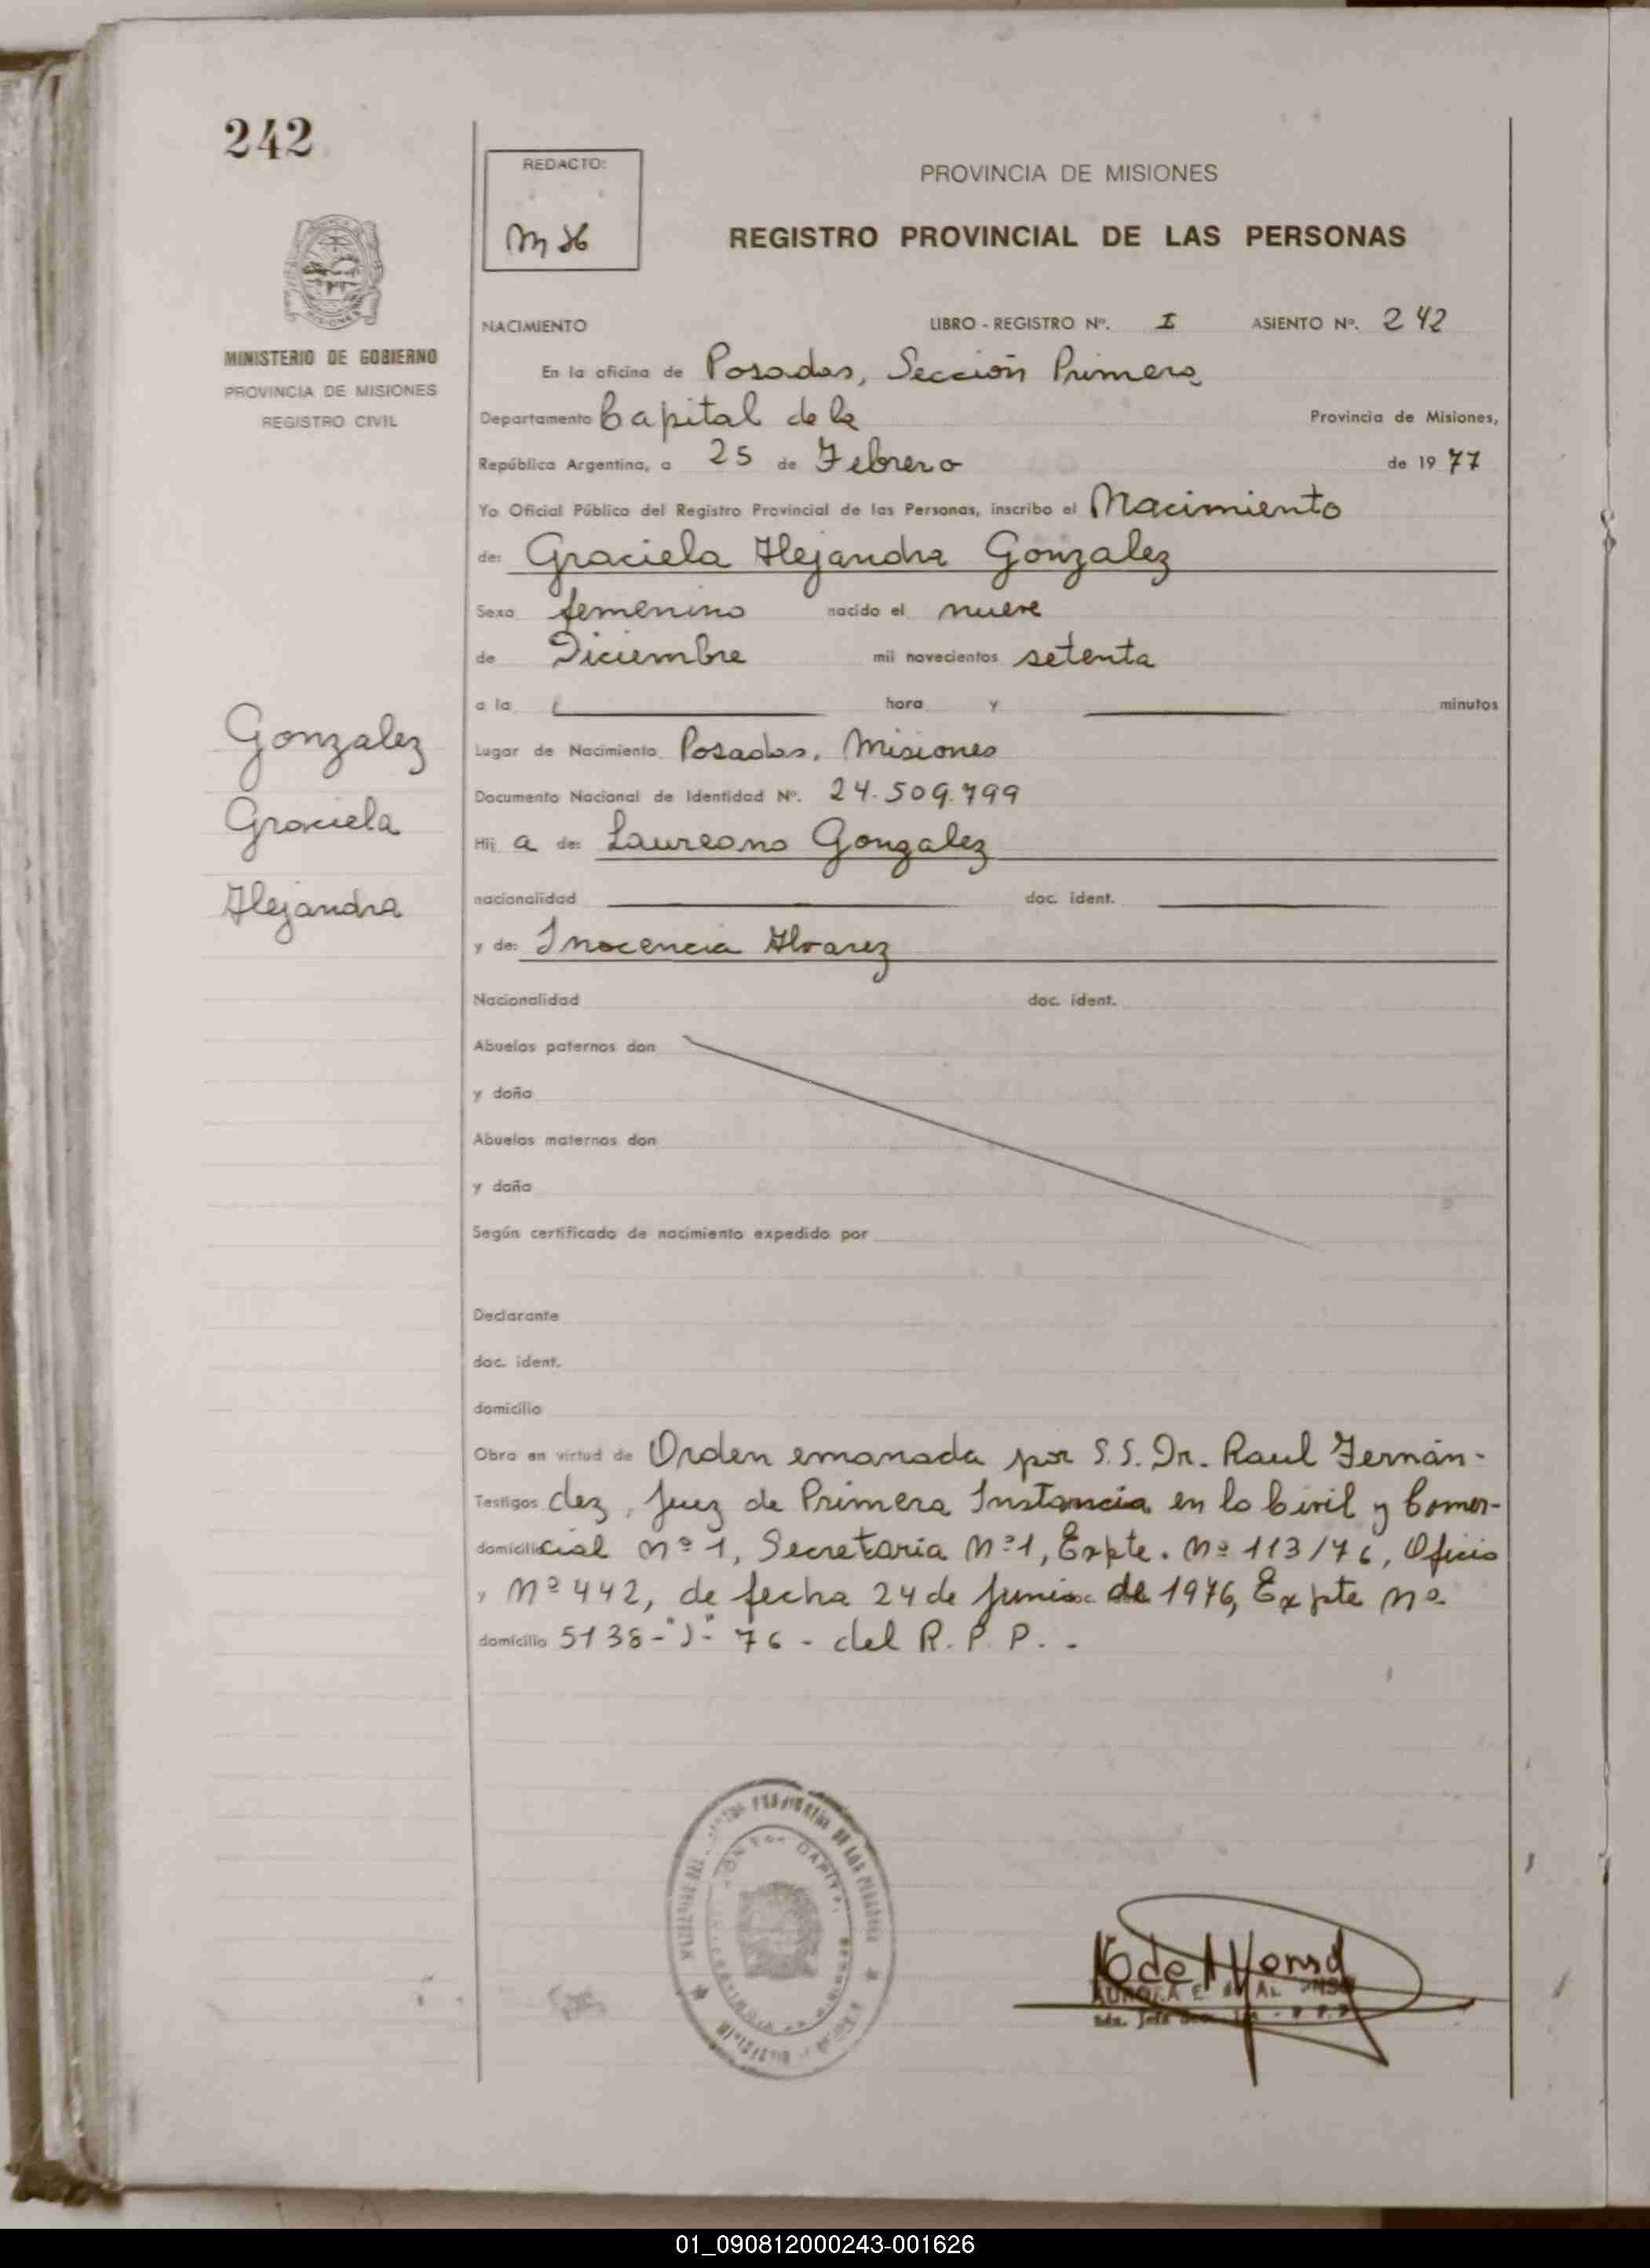 242
REDACTO:
PROVINCIA DE MISIONES
REGISTRO PROVINCIAL DE LAS PERSONAS
MINISTERIO DE GOBIERNO
PROVINCIA DE MISIONES
REGISTRO CIVIL
NACIMIENTO LIBRO - REGISTRO Nº. I ASIENTO Nº. 242
En la oficina de Posadas, Sección Primera
Departamento Capital de la Provincia de Misiones,
República Argentina, a 25 de Febrero de 1977
Yo Oficial Público del Registro Provincial de las Personas, inscribo el Nacimiento
de: Graciela Alejandra Gonzalez
Sexo femenino nacido el nueve
de Diciembre mil novecientos setenta
a la hora y minutos
Gonzalez
Graciela
Alejandra
Lugar de Nacimiento Posadas, Misiones
Documento Nacional de Identidad Nº. 24.509.799
Hij a de: Laureano Gonzalez
nacionalidad doc. ident.
y de: Inocencia Alvarez
Nacionalidad doc. ident.
Abuelos paternos don
y doña
Abuelos maternos don
y doña
Según certificado de nacimiento expedido por
Declarante
doc. ident.
domicilio
Obra en virtud de Orden emanada por S.S. Dr. Raul Fernán-
Testigos dez, Juez de Primera Instancia en lo Civil y Comer-
domicilio cial nº 1, Secretaria Nº 1, Expte. Nº 113/76, Oficio
y Nº 442, de fecha 24 de Junio de 1976, Expte Nº
domicilio 5138-"J"- 76 - del R.P.P. -
01_090812000243-001626